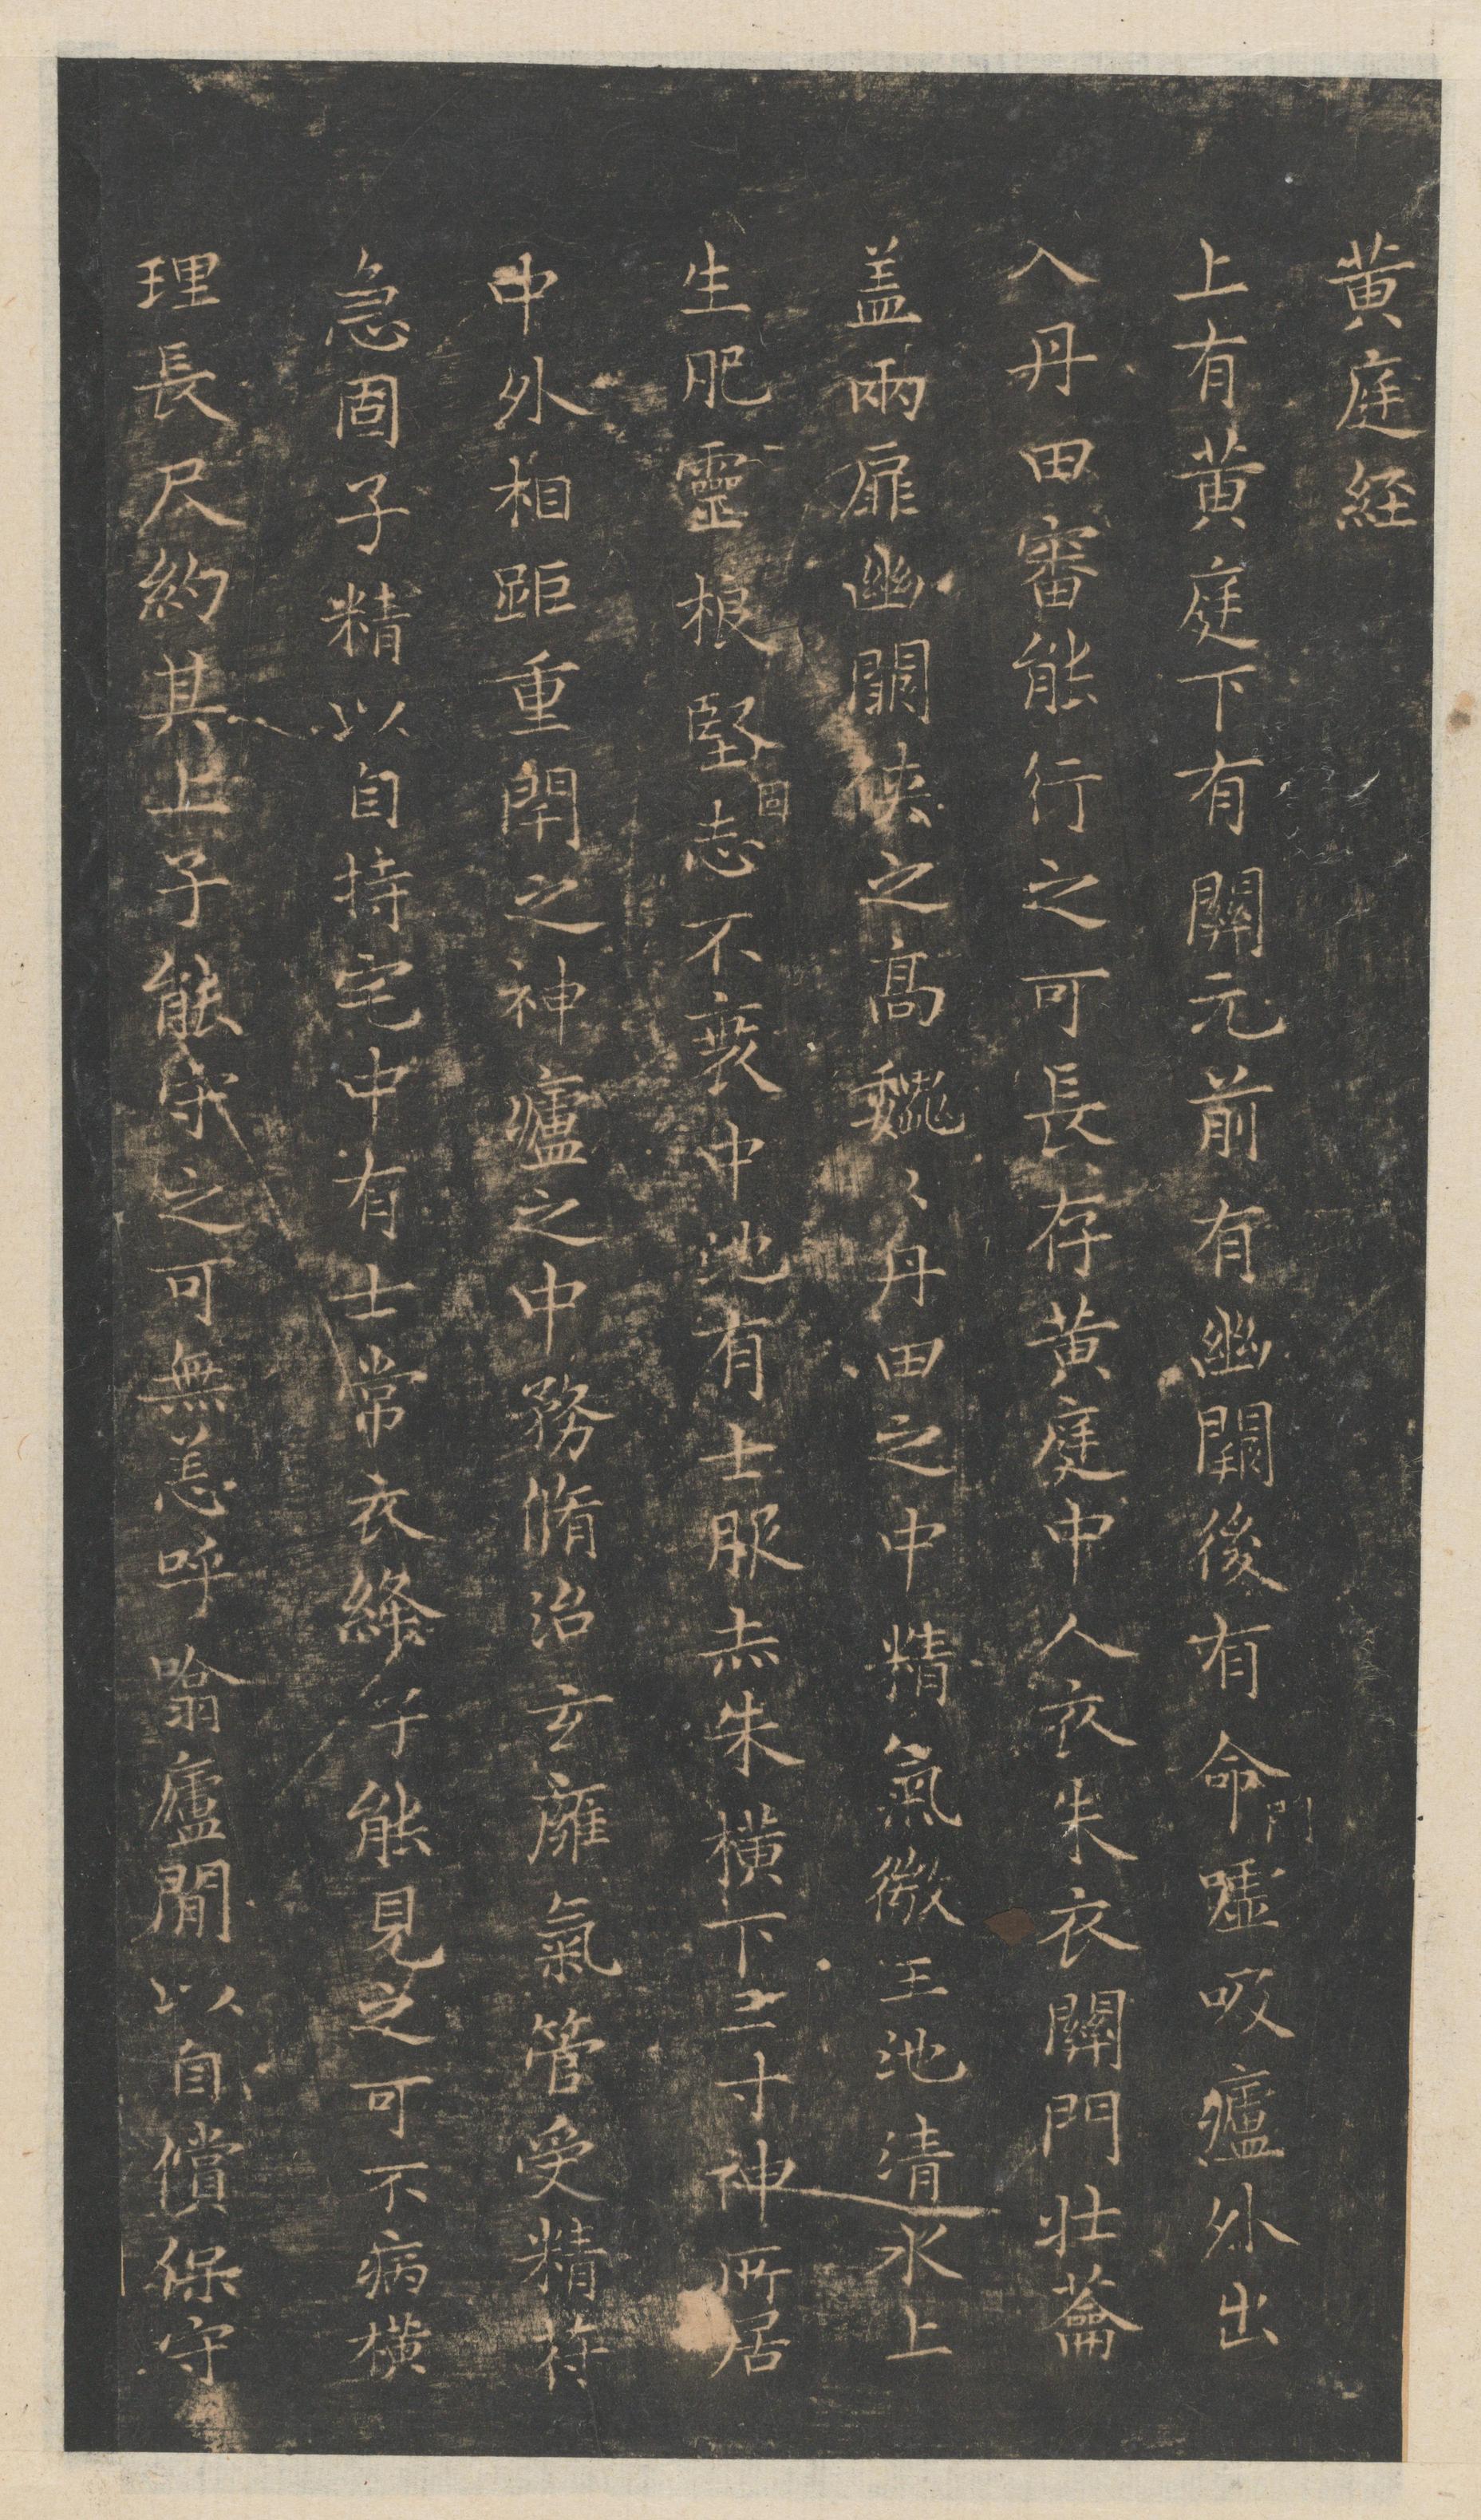 黄庭経
上有黄庭下有關元前有幽闕後有命門嘘吸廬外出
入丹田審能行之可長存黄庭中人衣朱衣關門壯蘥
盖兩扉幽闕俠之髙魏〻丹田之中精氣微玉池清水上
生肥靈根堅固志不衰中池有士服赤朱横下三寸神所居
中外相距重閇之神廬之中務脩治玄廱氣管受精符
急固子精以自持宅中有士常衣絳子能見之可不病横
理長尺約其上子能守之可無恙呼噏廬間以自償保守